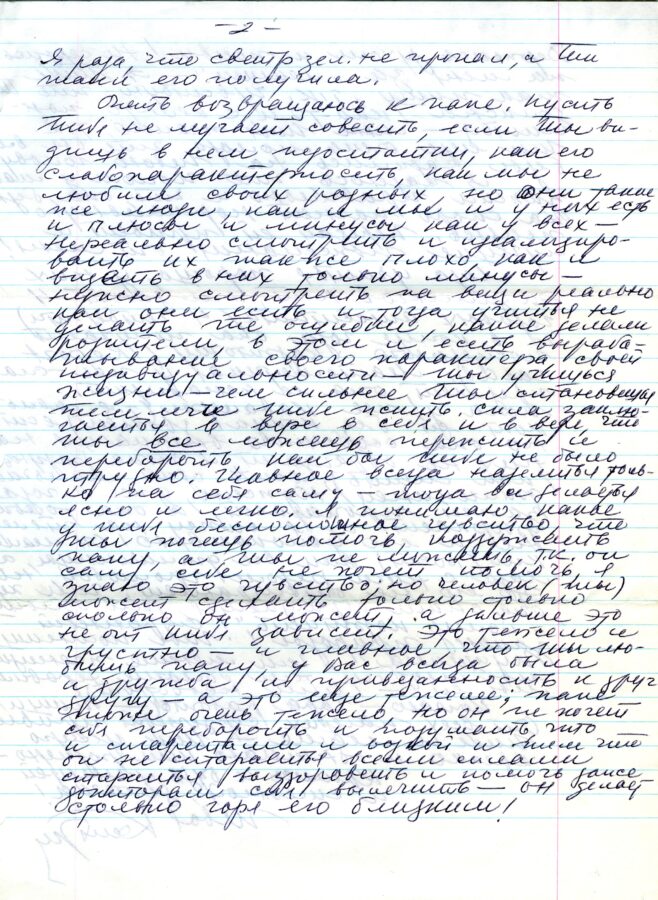 — 2 —
Я рада, что свитр зел. не пропал, а Ты
таки его получила.
Опять возвращаюсь к папе. Пусть
тебя не мучает совесть, если Ты ви-
дишь в нем недостатки, как его
слабохарактерность, как мы не
любим своих родных, но они такие
же люди, как и мы и у них есть
и плюсы и минусы как у всех —
нереально смотреть и идеализиро-
вать их также плохо как и
видеть в них только минусы —
нужно смотреть на вещи реально
как они есть и тогда учиться не
делать те ошибки, какие делали
родители, в этом и есть выраба-
тывание своего характера своей
индивидуальности — ты учишься
жизни — чем сильнее Ты становишься
тем легче тебе жить. Сила заклю-
чается в вере в себя и в вере что
ты все можешь пережить и
перебороть как бы тебе не было
трудно. Главное всегда надеяться толь-
ко на себя саму — тогда все делается
ясно и легко. Я понимаю, какое
у тебя беспомощное чувство, что
ты хочешь помочь, поддержать
папу, а ты не можешь, т.к. он
сам себе не хочет помочь. Я
знаю это чувство; но человек (ты)
может сделать только столько
сколько он может, а дальше это
не от тебя зависит. Это тяжело и
грустно — и главное что ты лю-
бишь папу у Вас всегда была
и дружба и привязанность к друг
другу — а это еще тяжелее; папе
тоже очень тяжело, но он не хочет
себя перебороть и подумать что
и и тем что
он не старается всеми силами
стараться выздороветь и помочь даже
докторам себя вылечить — он делает
столько горя его близким!